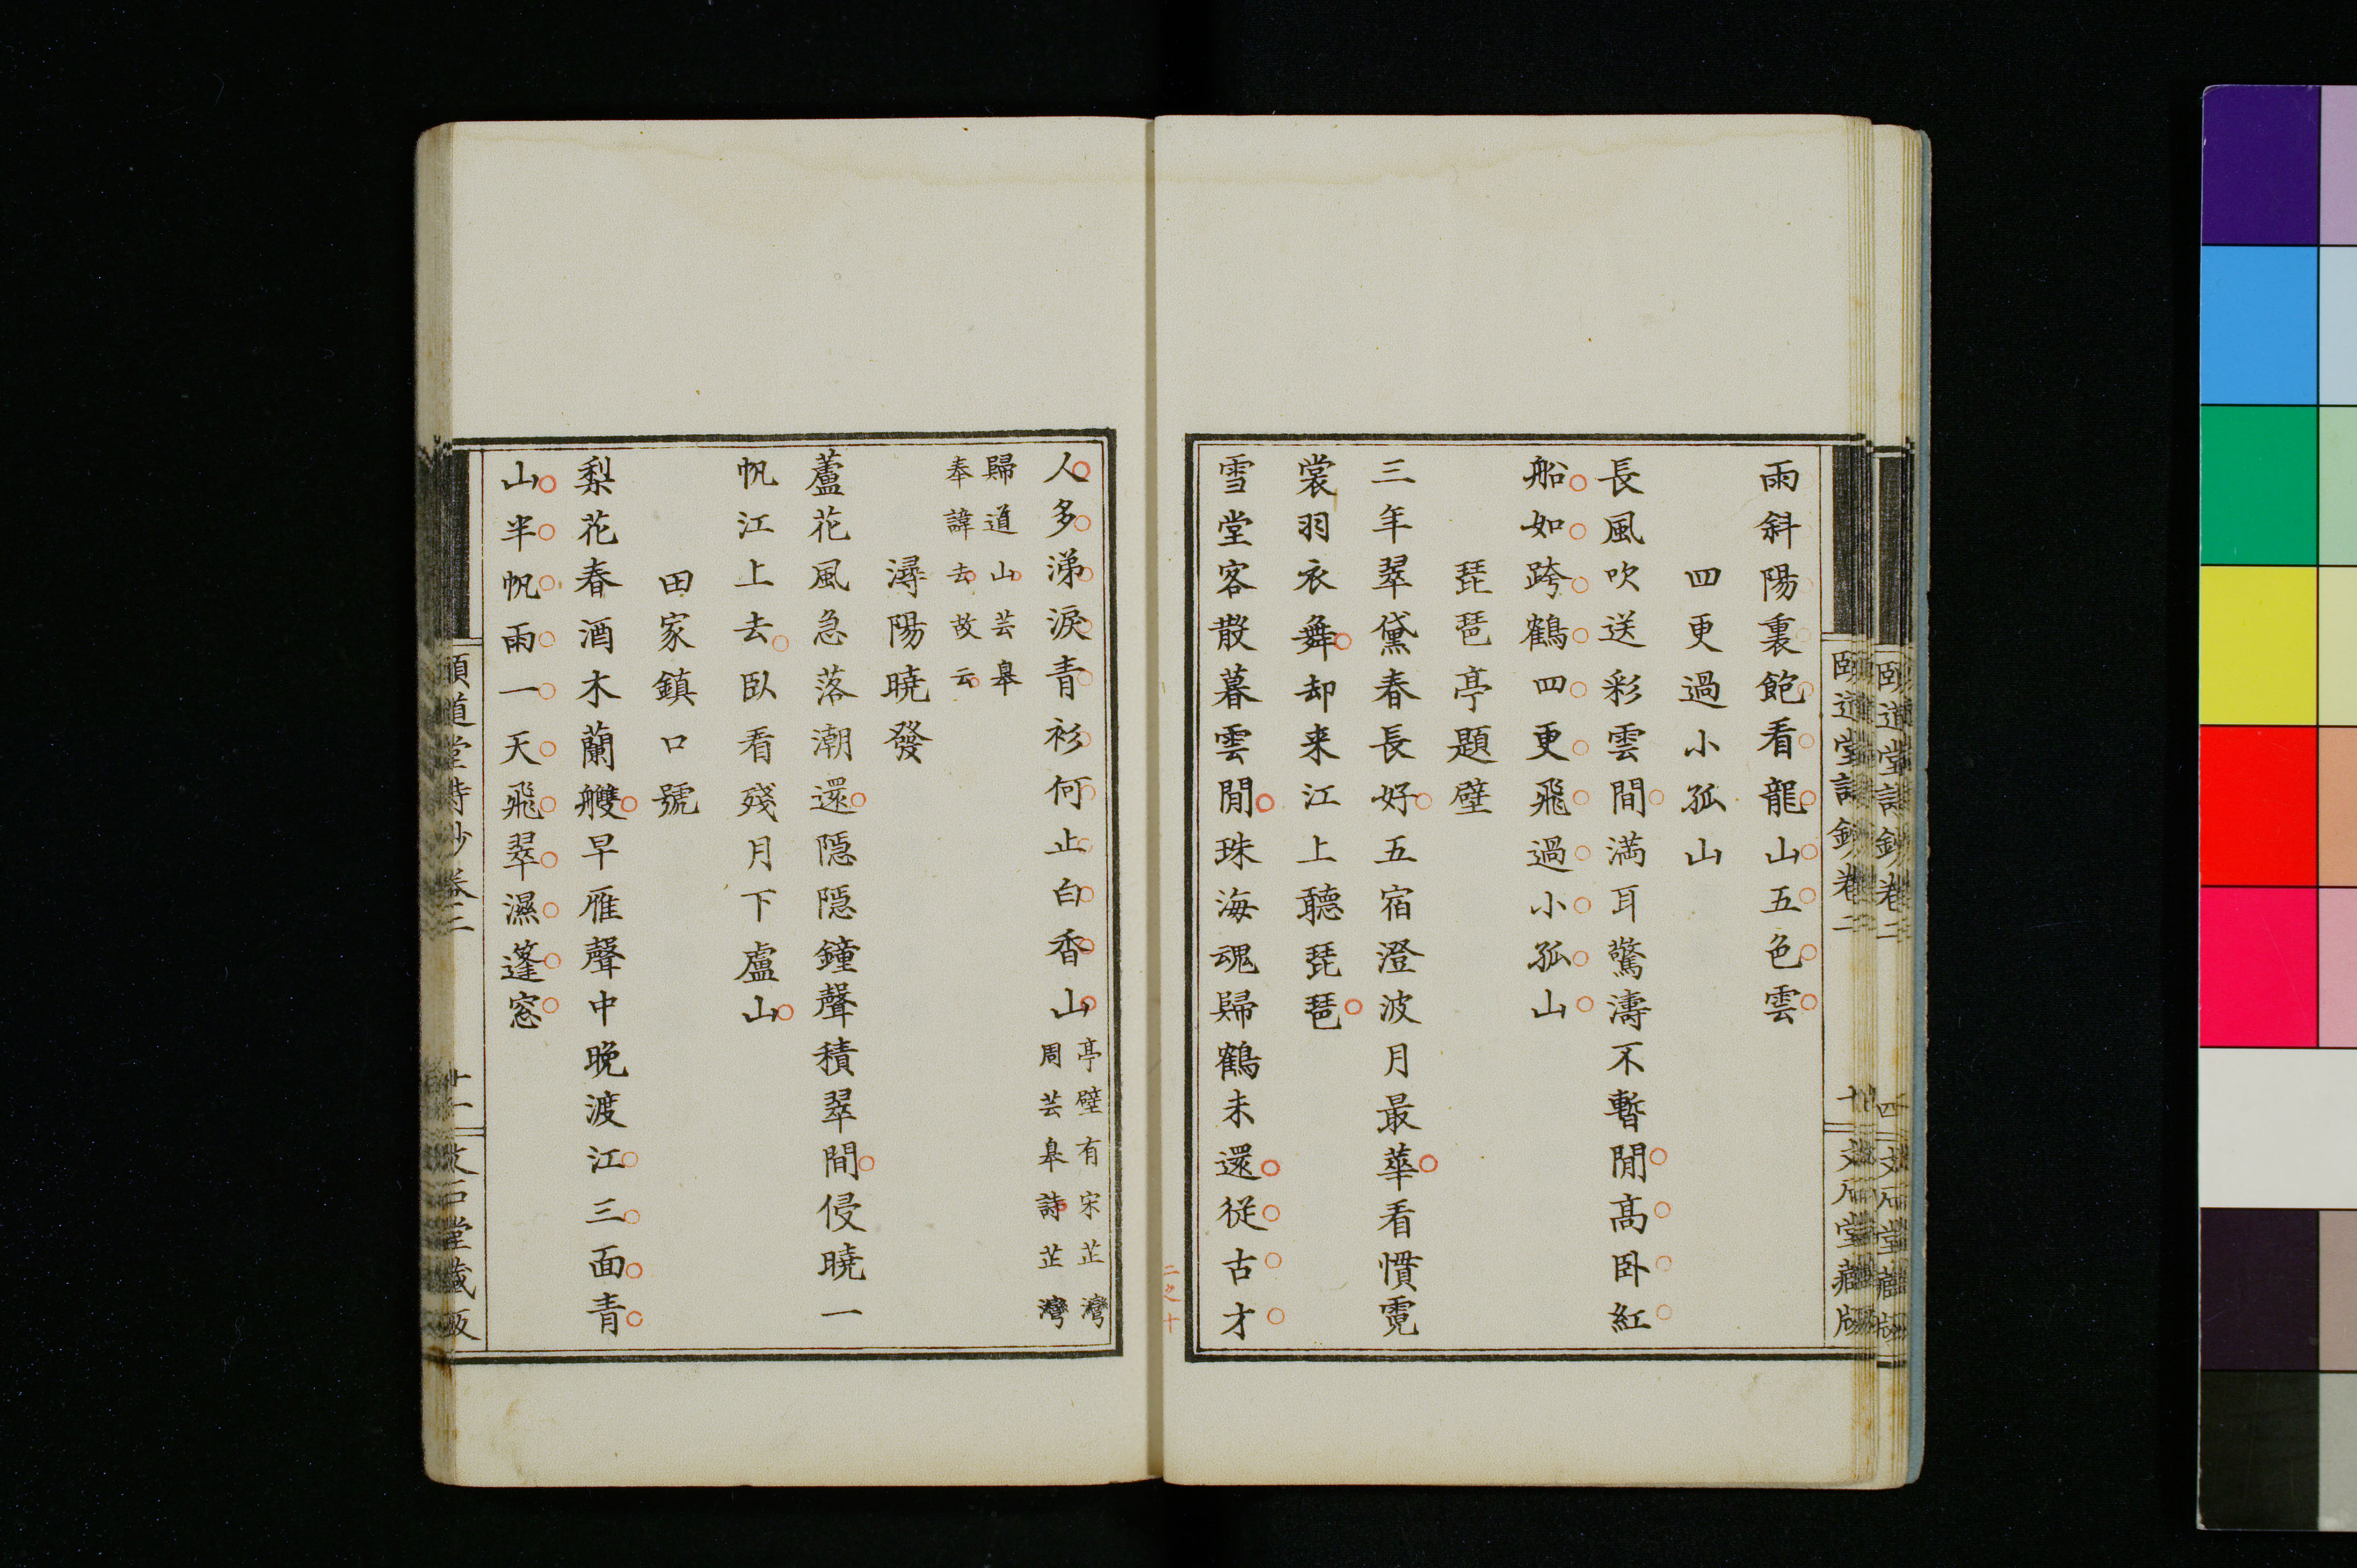 雨斜陽裏飽看龍山五色雲
四更過小孤山
長風吹送彩雲間滿耳驚濤不暫閒高卧紅
船如跨鶴四更飛過小孤山
琵琶亭題壁
三年翠黛春長好五宿澄波月最華看慣霓
裳羽衣舞却来江上聽琵琶
雪堂客散暮雲閒珠海魂歸鶴未還從古才
人多涕淚青衫何止白香山
亭壁有宋芷灣
周芸皋詩芷灣
歸道山芸皋
奉諱去故云
潯陽曉發
蘆花風急落潮還隱隱鐘聲積翠間侵曉一
帆江上去臥看殘月下廬山
田家鎮口號
梨花春酒木蘭艭早雁聲中晚渡江三面青
山半帆雨一天飛翠濕篷窓
頤道堂詩鈔卷二
十一
文石堂藏版
二之十